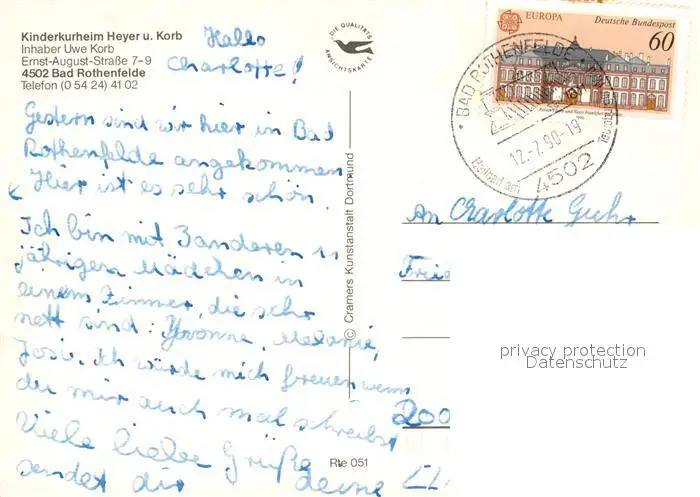 Kinderkurheim Heyer u. Korb
Inhaber Uwe Korb
Ernst-August-Straße 7-9
4502 Bad Rothenfelde
Telefon (0 54 24) 41 02
Hallo
Charlotte!
Gestern sind wir hier in Bad
Rothenfelde angekommen.
Hier ist es sehr schön.
Ich bin mit 3 anderen 11
jährigen Mädchen in
einem Zimmer, die sehr
nett sind: Yvonne, Melanie,
Josi. Ich würde mich freuen wenn
du mir auch mal schreibst
Viele liebe Grüße
sendet dir deine
DIE QUALITÄTS
ANSICHTSKARTE
© Cramers Kunstanstalt Dortmund
Rte 051
EUROPA
Deutsche Bundespost
60
BAD ROTHENFELDE
12.-7.90-19
Heilbad am
4502
An Charlotte
privacy protection
Datenschutz